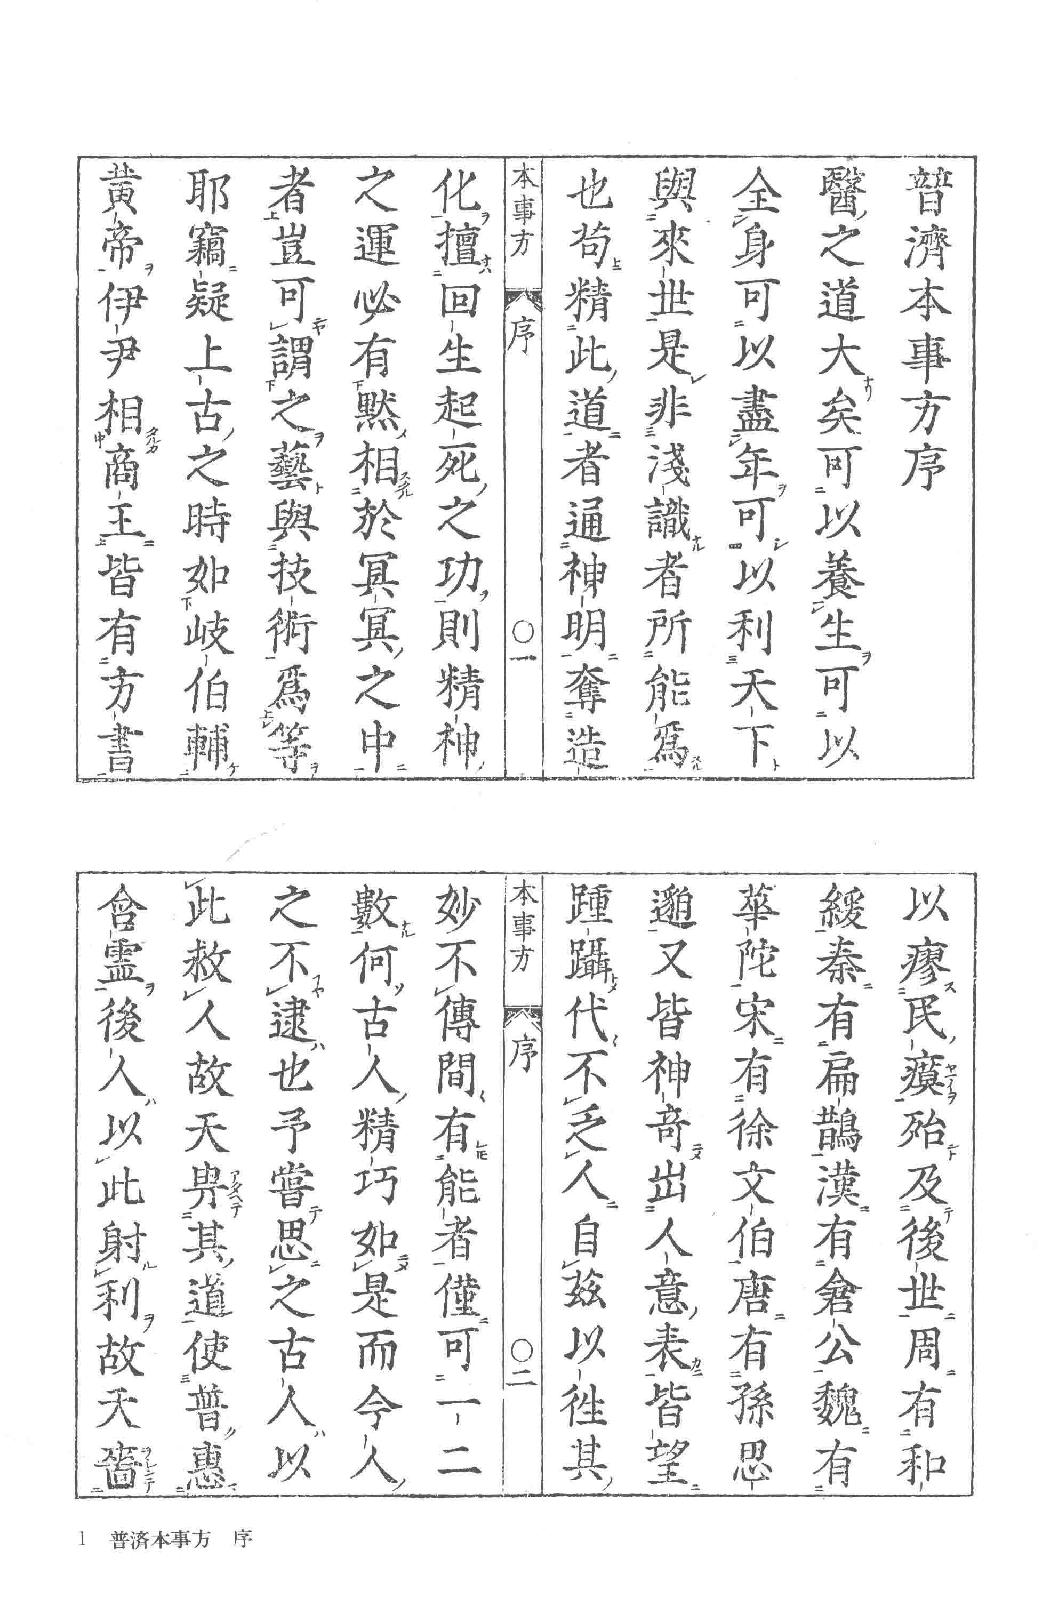 普濟本事方序
醫之道大矣可以養生可以
全身可以盡年可以利天下
與來世是非淺識者所能爲
也苟精此道者通神明奪造
本事方
序
〇一
化擅回生起死之功則精神
之運必有默相於冥冥之中
者豈可謂之藝與技術爲等
耶竊疑上古之時如岐伯輔
黃帝伊尹相商王皆有方書
以瘳民瘼殆及後世周有和
緩秦有扁鵲漢有倉公魏有
華陀宋有徐文伯唐有孫思
邈又皆神奇出人意表皆望
踵躡代不乏人自茲以徃其
本事方
序
〇二
妙不傳間有能者僅可一二
數何古人精巧如是而今人
之不逮也予嘗思之古人以
此救人故天畀其道使普惠
含靈後人以此射利故天嗇
1 普済本事方 序